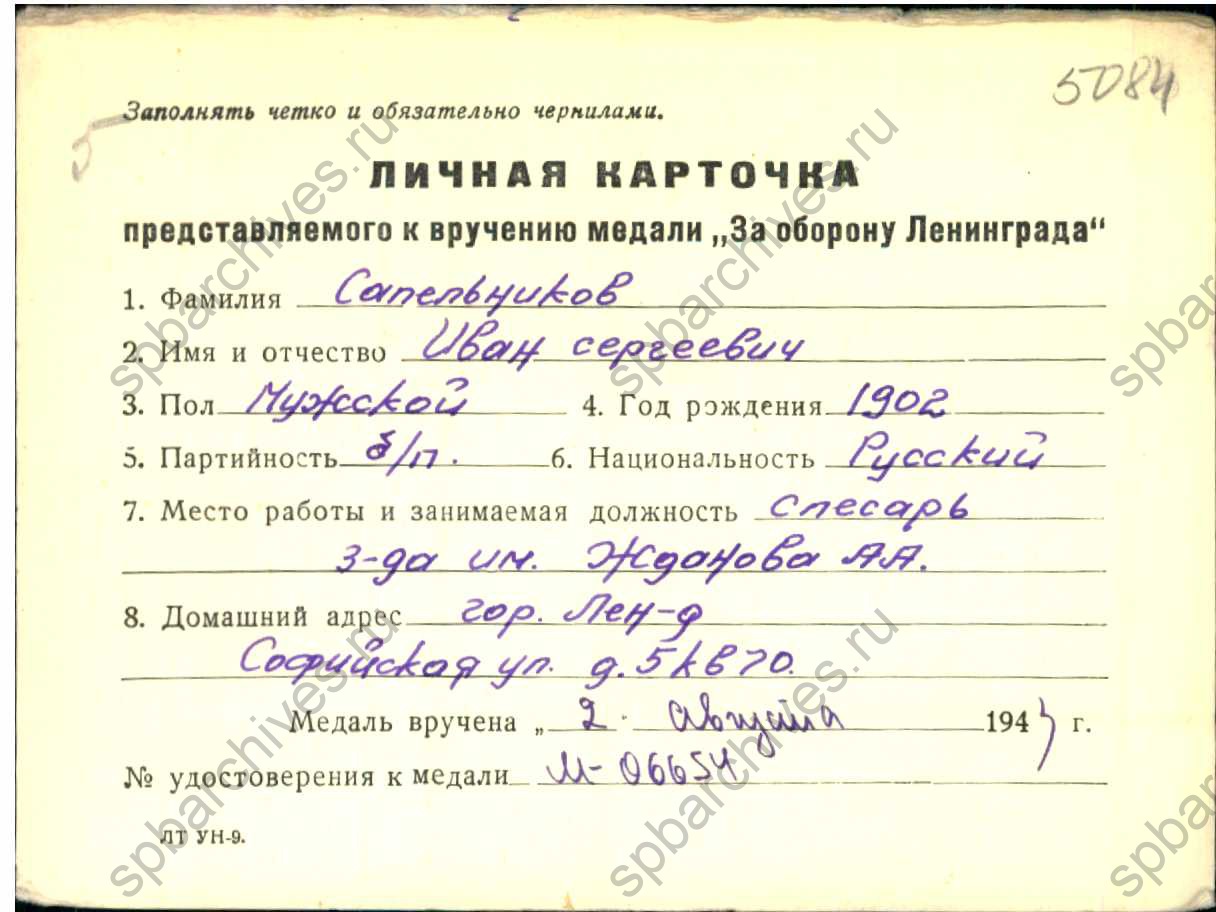 5084
Заполнять четко и обязательно чернилами.
5
ЛИЧНАЯ КАРТОЧКА
представляемого к вручению медали „За оборону Ленинграда“
1. Фамилия Сапельников
2. Имя и отчество Иван сергеевич
3. Пол Мужской 4. Год рождения 1902
5. Партийность б/п. 6. Национальность Русский
7. Место работы и занимаемая должность слесарь
з-да им. Жданова АА.
8. Домашний адрес гор. Лен-д
Софийская ул. д. 5 кв 70.
Медаль вручена „ 2 " Августа 194 г.
№ удостоверения к медали М-06654
ЛТ УН-9.
spbarchives.ru
spbarchives.ru
spbarchives.ru
spbarchives.ru